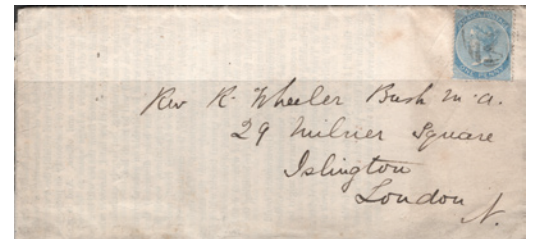 ONE PENNY
Rev R. Wheeler Bush M.A.
29 Milner Square
Islington
London
N.